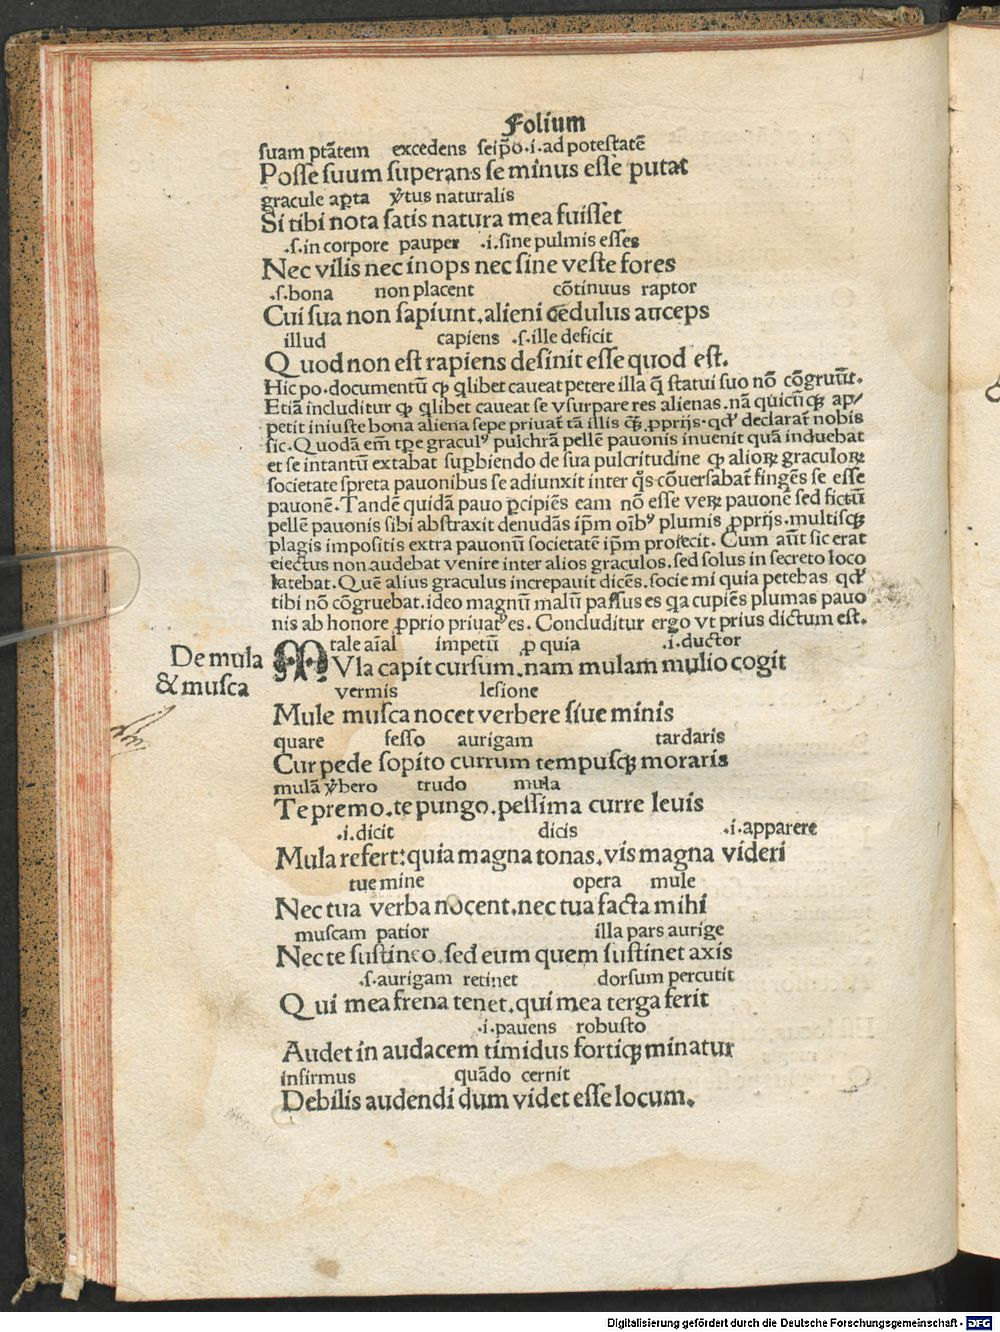 Folium
suam ptãtem excedens seip̃o.i.ad potestatẽ
Posse suum superans se minus esse putat
gracule aꝑta v̾tus naturalis
Si tibi nota satis natura mea fuisset
.s.in corpore pauper .i.sine pulmis esses
Nec vilis nec inops nec sine veste fores
.s.bona non placent cõtinuus raptor
Cui sua non sapiunt.alieni cedulus auceps
illud capiens .s.ille deficit
Quod non est rapiens desinit esse quod est.
Hic po.documentũ ꝙ qlibet caueat petere illa q̃ statui suo nõ cõgruũt.
Etiã includitur ꝙ qlibet caueat se vsurpare res alienas.nã quicũqꝫ ap⸗
petit iniuste bona aliena sepe priuat̃ tã illis qꝫ̃ ꝓprijs.qd̾ declarat̃ nobis
sic.Quodã em̃ tꝑe gracul⁹ pulchrã pellẽ pauonis inuenit quã induebat
et se intantũ extabat suꝑbiendo de sua pulcritudine ꝙ alioꝝ graculoꝝ
societate spreta pauonibus se adiunxit inter q̊s cõuersabat̃ fingẽs se esse
pauonẽ.Tandẽ quidã pauo ꝑcipiẽs eam nõ esse veꝝ pauonẽ sed fictũ
pellẽ pauonis sibi abstraxit denudãs ip̃m oĩb⁹ plumis ꝓprijs.multisqꝫ
plagis impositis extra pauonũ societatẽ ip̃m proiecit. Cum aũt sic erat
eiectus non audebat venire inter alios graculos.sed solus in secreto loco
latebat.Quẽ alius graculus increpauit dicẽs.socie mi quia petebas qd̾
tibi nõ cõgruebat.ideo magnũ malũ passus es qa cupiẽs plumas pauo
nis ab honore ꝓprio priuat⁹ es. Concluditur ergo vt prius dictum est.
De mula
& musca
tale aĩal impetũ ꝓ quia .i.ductor
MVla capit cursum.nam mulam mulio cogit
vermis lesione
Mule musca nocet verbere siue minis
quare fesso aurigam tardaris
Cur pede sopito currum tempusqꝫ moraris
mulã v̾bero trudo mula
Te premo.te pungo.pessima curre leuis
.i.dicit dicis .i.apparere
Mula refert:quia magna tonas.vis magna videri
tue mine opera mule
Nec tua verba nocent.nec tua facta mihi
muscam patior illa pars aurige
Nec te sustineo.sed eum quem sustinet axis
.s.aurigam retinet dorsum percutit
Qui mea frena tenet.qui mea terga ferit
.i.pauens robusto
Audet in audacem timidus fortiqꝫ minatur
infirmus quãdo cernit
Debilis audendi dum videt esse locum.
Digitalisierung gefördert durch die Deutsche Forschungsgemeinschaft - DFG